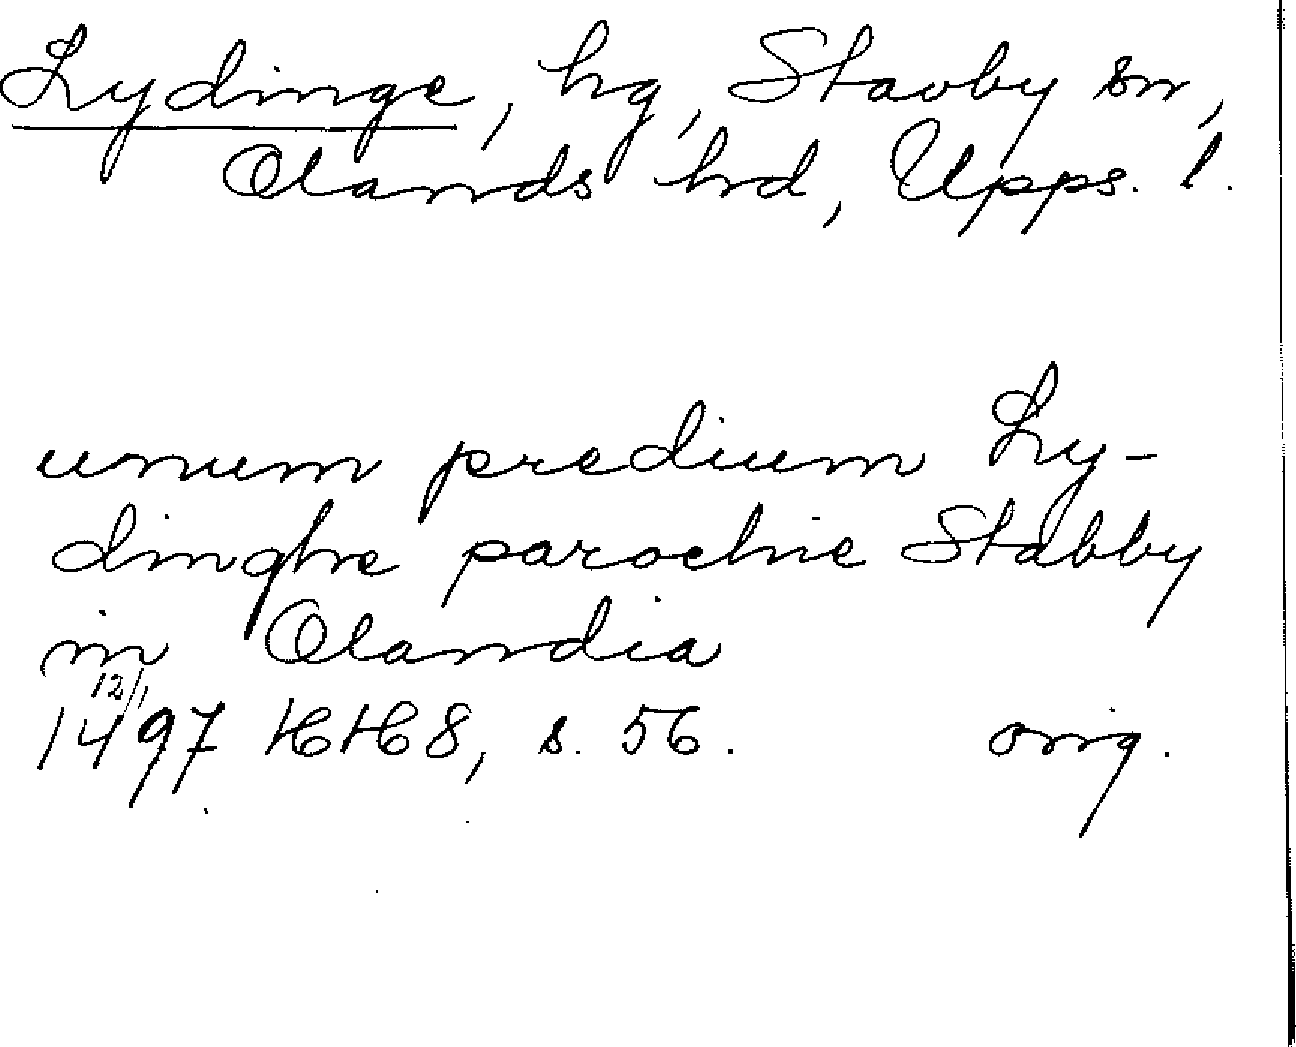 Lydinge, hg, Stavby sn,
Olands hd, Upps. l.
unum predium Ly-
dinghe parochie Stabby
in Olandia
12/1
1497 HH 8, s. 56. orig.